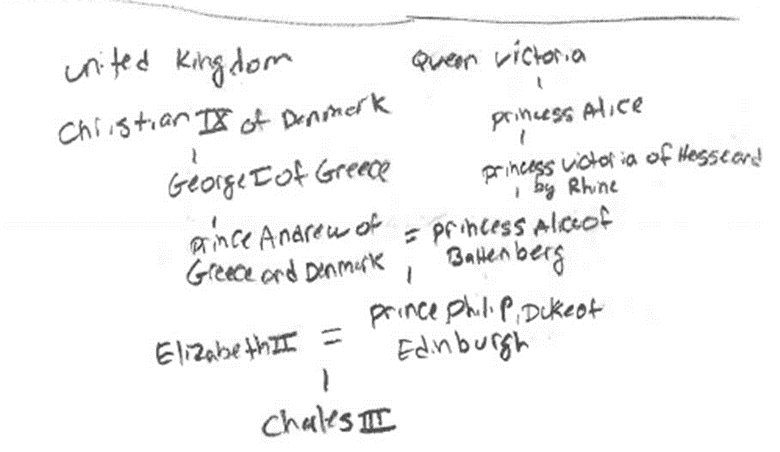 United Kingdom
Queen Victoria
Christian IX of Denmark
princess Alice
George I of Greece
princess victoria of Hesse and
by Rhine
prince Andrew of = princess Alice of
Greece and Denmark Battenberg
prince Philip, Duke of
Elizabeth II = Edinburgh
Charles III